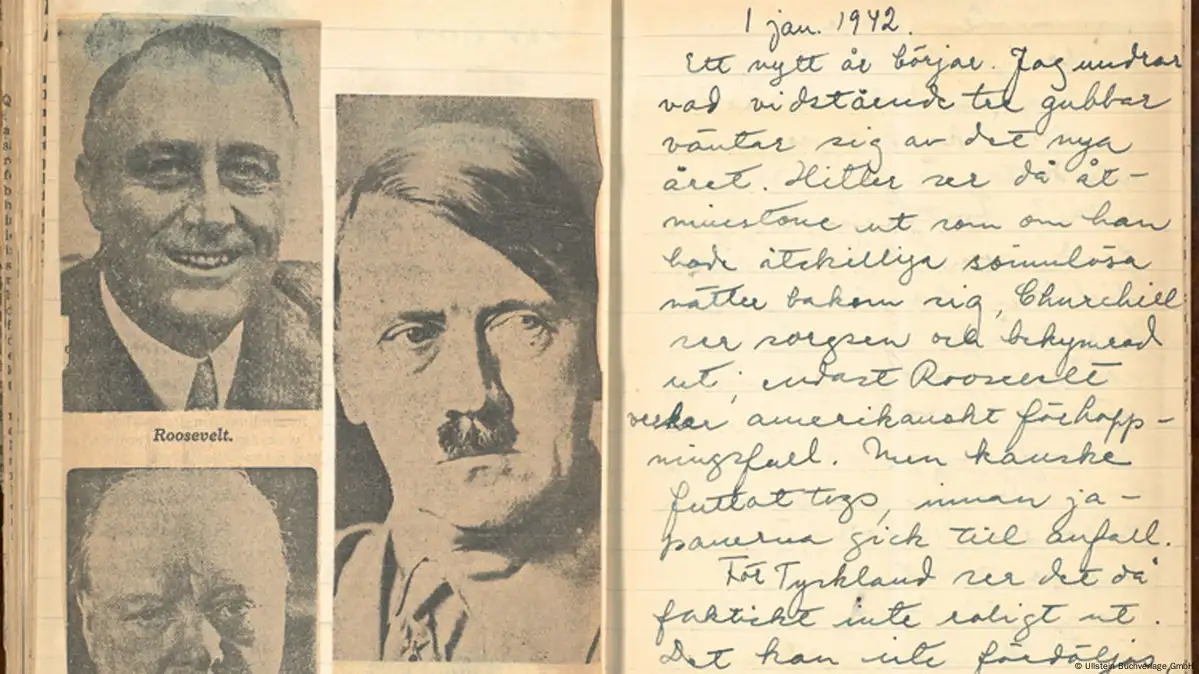 Roosevelt.
1 jan. 1942.
Ett nytt år börjar. Jag undrar
vad vidstående tre gubbar
väntar sig av det nya
året. Hitler ser då åt-
minstone ut som om han
hade åtskilliga sömnlösa
nätter bakom sig, Churchill
ser sorgsen och bekymrad
ut, endast Roosevelt
verkar amerikanskt förhopp-
ningsfull. Men kanske
fottot togs, innan ja-
panerna gick till anfall.
För Tyskland ser det då
faktiskt inte roligt ut.
Det kan inte fördöljas,
© Ullstein Buchverlage GmbH